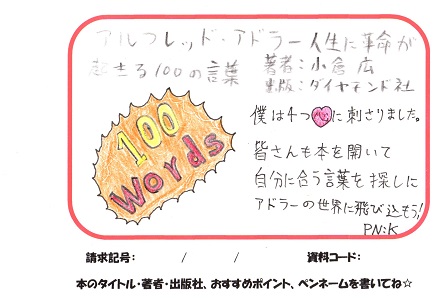 アルフレッド・アドラー人生に革命が
起きる100の言葉
著者：小倉広
出版：ダイヤモンド社
100
Words
僕は4つ心に刺さりました。
皆さんも本を開いて
自分に合う言葉を探しに
アドラーの世界に飛び込もう!
PN:K
請求記号: / / 資料コード:
本のタイトル・著者・出版社、おすすめポイント、ペンネームを書いてね☆